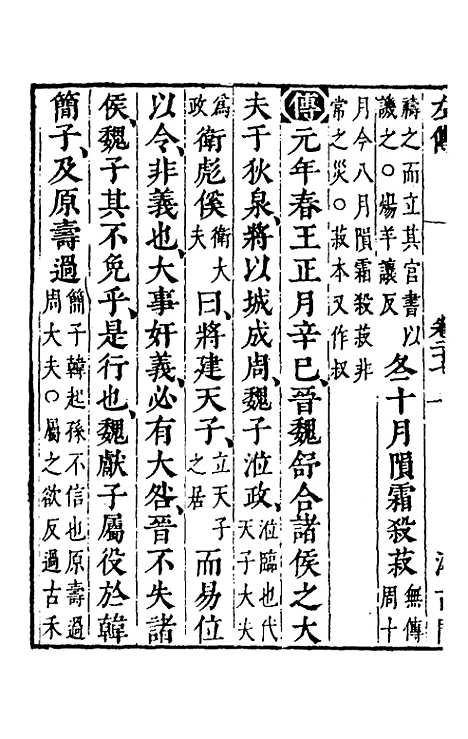 禱之而立其官書以譏之〇煬羊讓反冬十月隕霜殺菽無傳周十
月今八月隕霜殺菽非常之災〇菽本又作叔
傳元年春王正月辛巳、晉魏舒合諸侯之大
夫于狄泉、將以城成周、魏子涖政、涖臨也代天子大夫
爲政衛彪傒衛大夫曰、將建天子、立天子之居而易位
以令、非義也、大事奸義、必有大咎、晉不失諸
侯、魏子其不免乎、是行也、魏獻子屬役於韓
簡子、及原壽過簡子韓起孫不信也原壽過周大夫〇屬之欲反過古禾